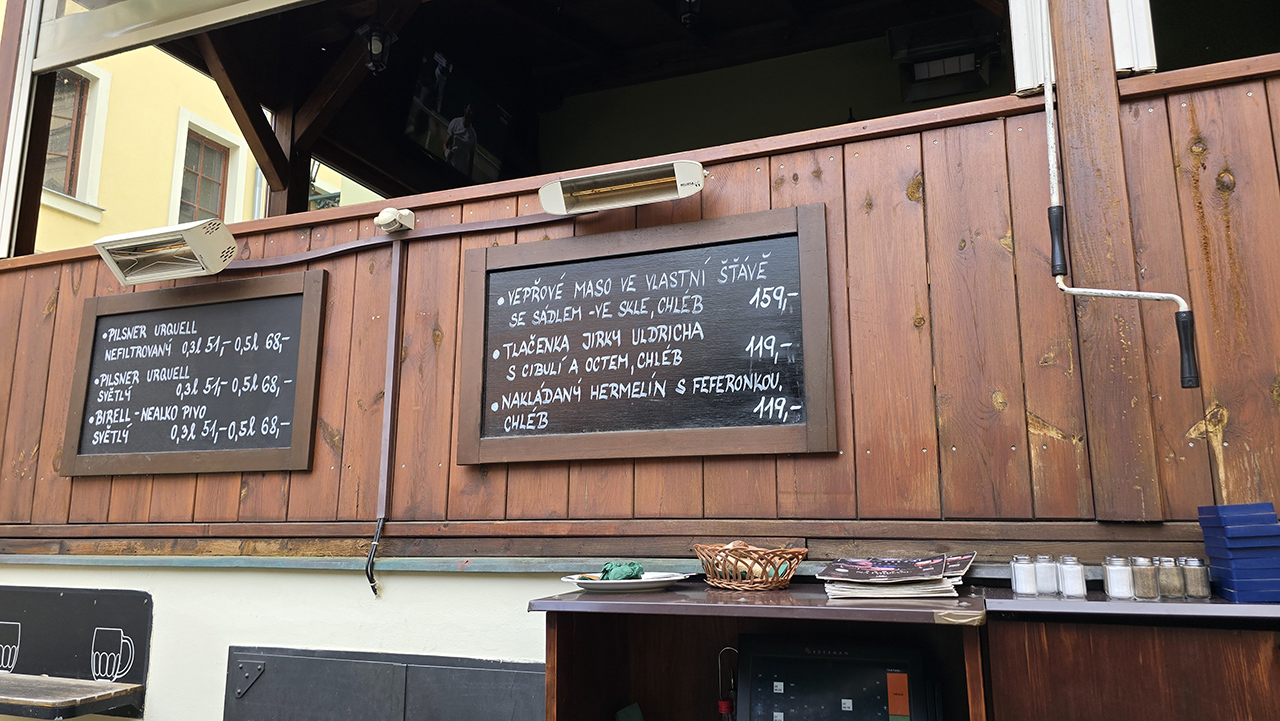 •PILSNER URQUELL
NEFILTROVANÝ 0,3l 51,- 0,5l 68,-
•PILSNER URQUELL
SVĚTLÝ 0,3l 51,- 0,5l 68,-
•BIRELL - NEALKO PIVO
SVĚTLÝ 0,3l 51,- 0,5l 68,-
•VEPŘOVÉ MASO VE VLASTNÍ ŠŤÁVĚ
SE SÁDLEM - VE SKLE, CHLÉB 159,-
•TLAČENKA JIRKY ULDRICHA
S CIBULÍ A OCTEM, CHLÉB 119,-
•NAKLÁDANÝ HERMELÍN S FEFERONKOU,
CHLÉB 119,-